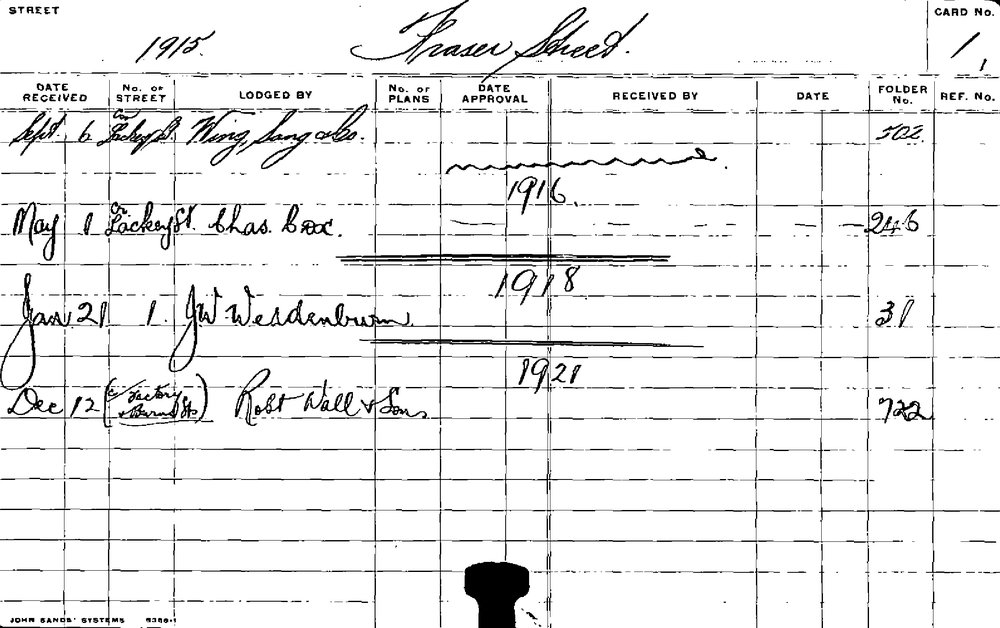 STREET
CARD No.
1915. Fraser Street. 1
DATE RECEIVED No. OF STREET LODGED BY No. OF PLANS DATE APPROVAL RECEIVED BY DATE FOLDER No. REF. No.
Sept. 6 Cr Lackey St. Wing Sang & Co. 502.
1916.
May 1 Cr Lackey St. Chas. Cox. 246
1918
Jan 21 1. JW 31
1921
Dec 12 (c/ Factory & Burns Sts) Robt Wall & Sons 722
JOHN SANDS' SYSTEMS